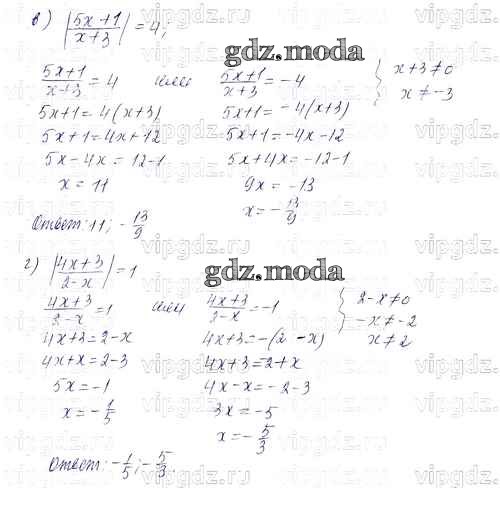 в) |5x+1 / x+3| = 4;
gdz.moda
5x+1 / x+3 = 4 или 5x+1 / x+3 = -4 { x+3≠0
5x+1 = 4(x+3) 5x+1 = -4(x+3) x≠-3
5x+1 = 4x+12 5x+1 = -4x-12
5x-4x = 12-1 5x+4x = -12-1
x = 11 9x = -13
x = -13/9
Ответ: 11; -13/9
г) |4x+3 / 2-x| = 1
gdz.moda
4x+3 / 2-x = 1 или 4x+3 / 2-x = -1 { 2-x≠0
4x+3 = 2-x 4x+3 = -(2-x) -x≠-2
4x+x = 2-3 4x+3 = -2+x x≠2
5x = -1 4x-x = -2-3
x = -1/5 3x = -5
x = -5/3
Ответ: -1/5; -5/3.
vipgdz.com